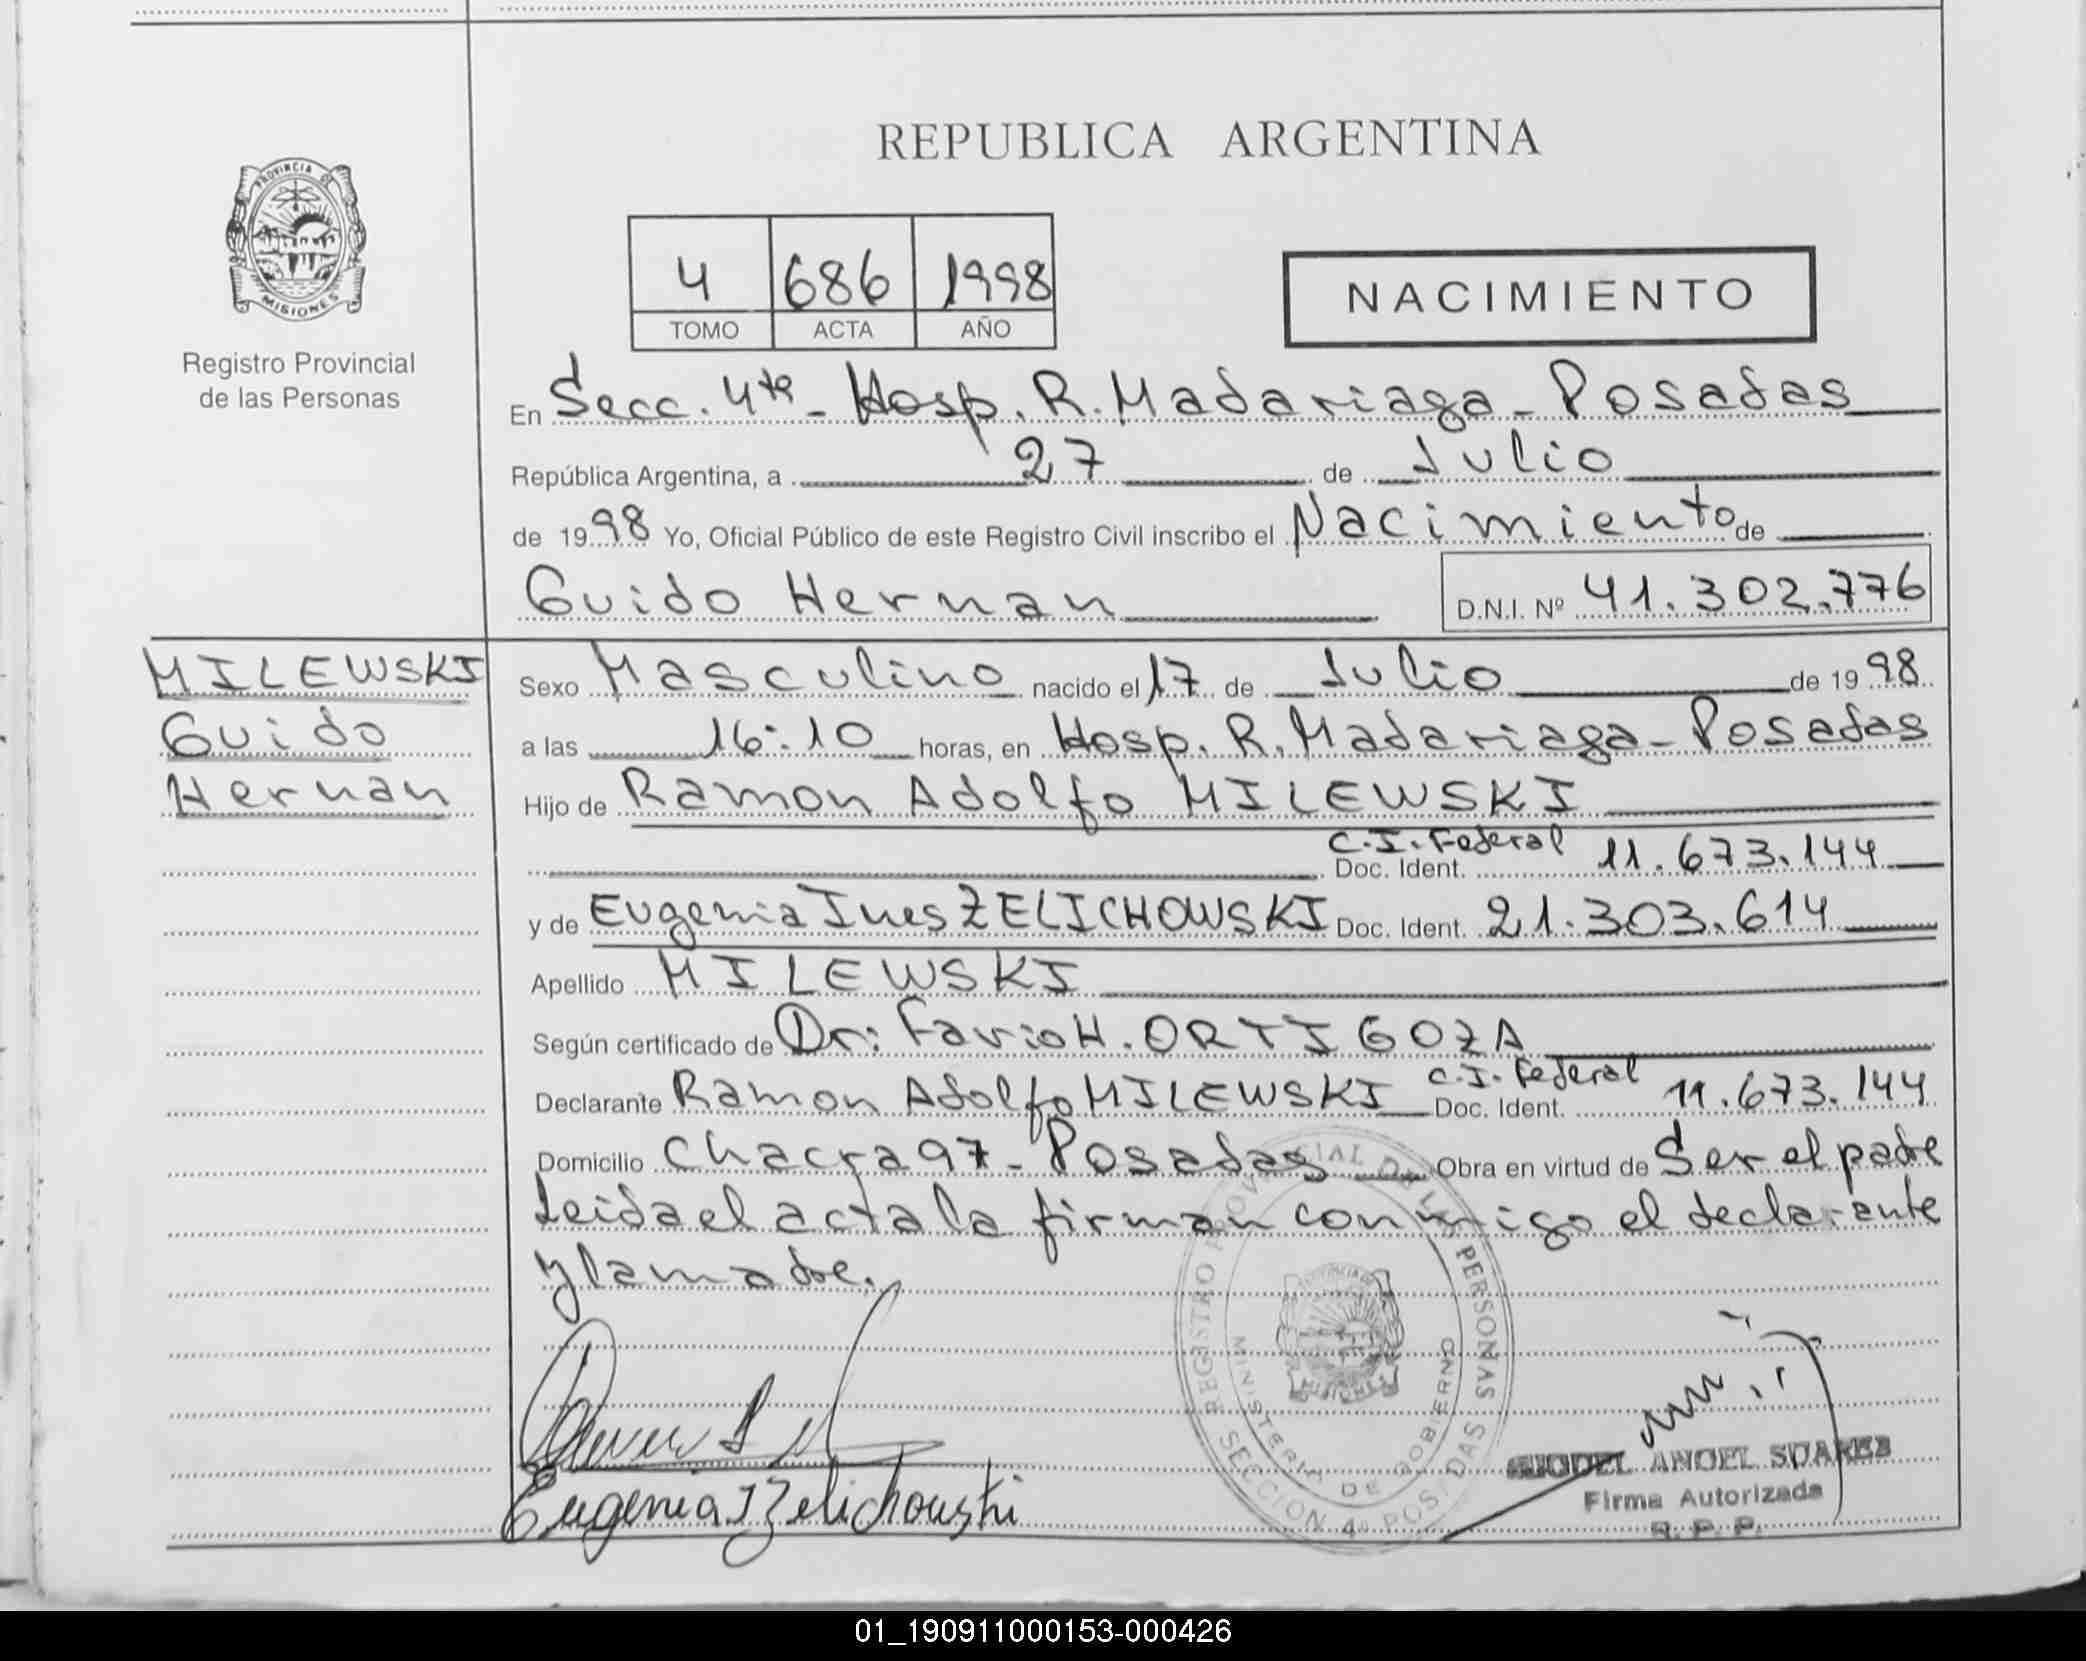 REPUBLICA ARGENTINA
PROVINCIA DE
MISIONES
Registro Provincial
de las Personas
4 686 1998
TOMO ACTA AÑO
NACIMIENTO
En Secc. 4ta - Hosp. R. Madariaga - Posadas
República Argentina, a 27 de Julio
de 1998 Yo, Oficial Público de este Registro Civil inscribo el Nacimiento de
Guido Hernan D.N.I. Nº 41.302.776
MILEWSKI
Guido
Hernan
Sexo Masculino nacido el 17 de Julio de 1998
a las 16:10 horas, en Hosp. R. Madariaga - Posadas
Hijo de Ramon Adolfo MILEWSKI
C.I. Federal
Doc. Ident. 11.673.144
y de Eugenia Ines ZELICHOWSKI Doc. Ident. 21.303.614
Apellido MILEWSKI
Según certificado de Dr: Favio H. ORTIGOZA
Declarante Ramon Adolfo MILEWSKI C.I. Federal Doc. Ident. 11.673.144
Domicilio Chacra 97 - Posadas Obra en virtud de Ser el padre
Leida el acta la firman conmigo el declarante
y la madre.
REGISTRO PROVINCIAL DE LAS PERSONAS
MINISTERIO DE GOBIERNO
SECCION 4a POSADAS
Eugenia I Zelichowski
MIGUEL ANGEL SUAREZ
Firma Autorizada
R. P. P.
01_190911000153-000426